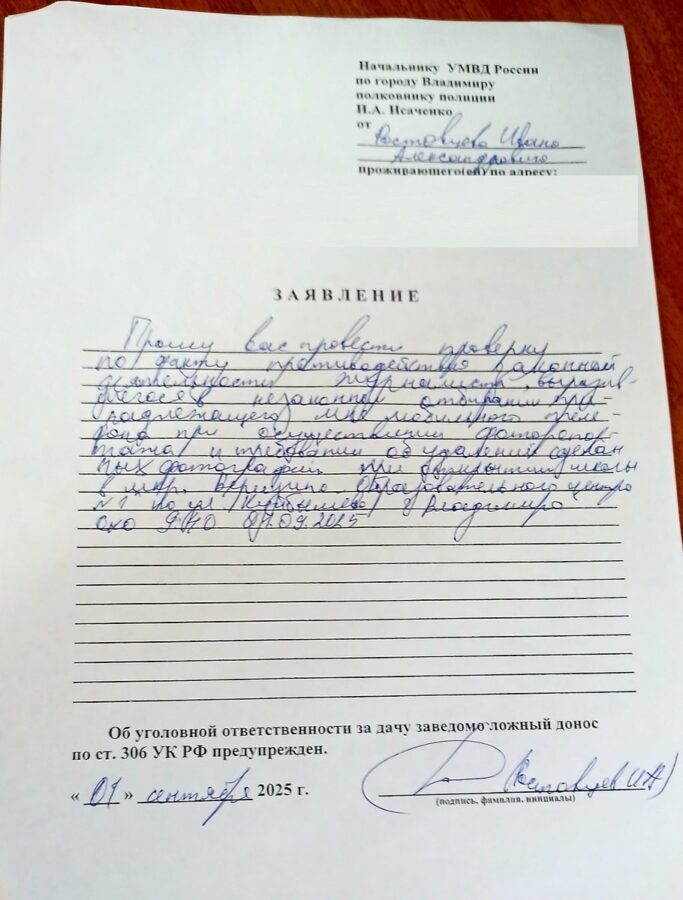 Начальнику УМВД России
по городу Владимиру
полковнику полиции
И.А. Исаченко
от Ростовцева Ивана
Александровича
проживающего(ей) по адресу:
ЗАЯВЛЕНИЕ
Прошу Вас провести проверку
по факту противодействия законной
деятельности журналиста, выразив-
шегося в незаконном отбирании при-
надлежащего мне мобильного теле-
фона при осуществлении фоторепор-
тажа и требовании об удалении сделан
ных фотографий при открытии школы
в мкр. Веризино Образовательного центра
№1 по ул. Куйбышева г. Владимира
около 9:40 01.09.2025
Об уголовной ответственности за дачу заведомо ложный донос
по ст. 306 УК РФ предупрежден.
« 01 » сентября 2025 г. Ростовцев И.А.
(подпись, фамилия, инициалы)